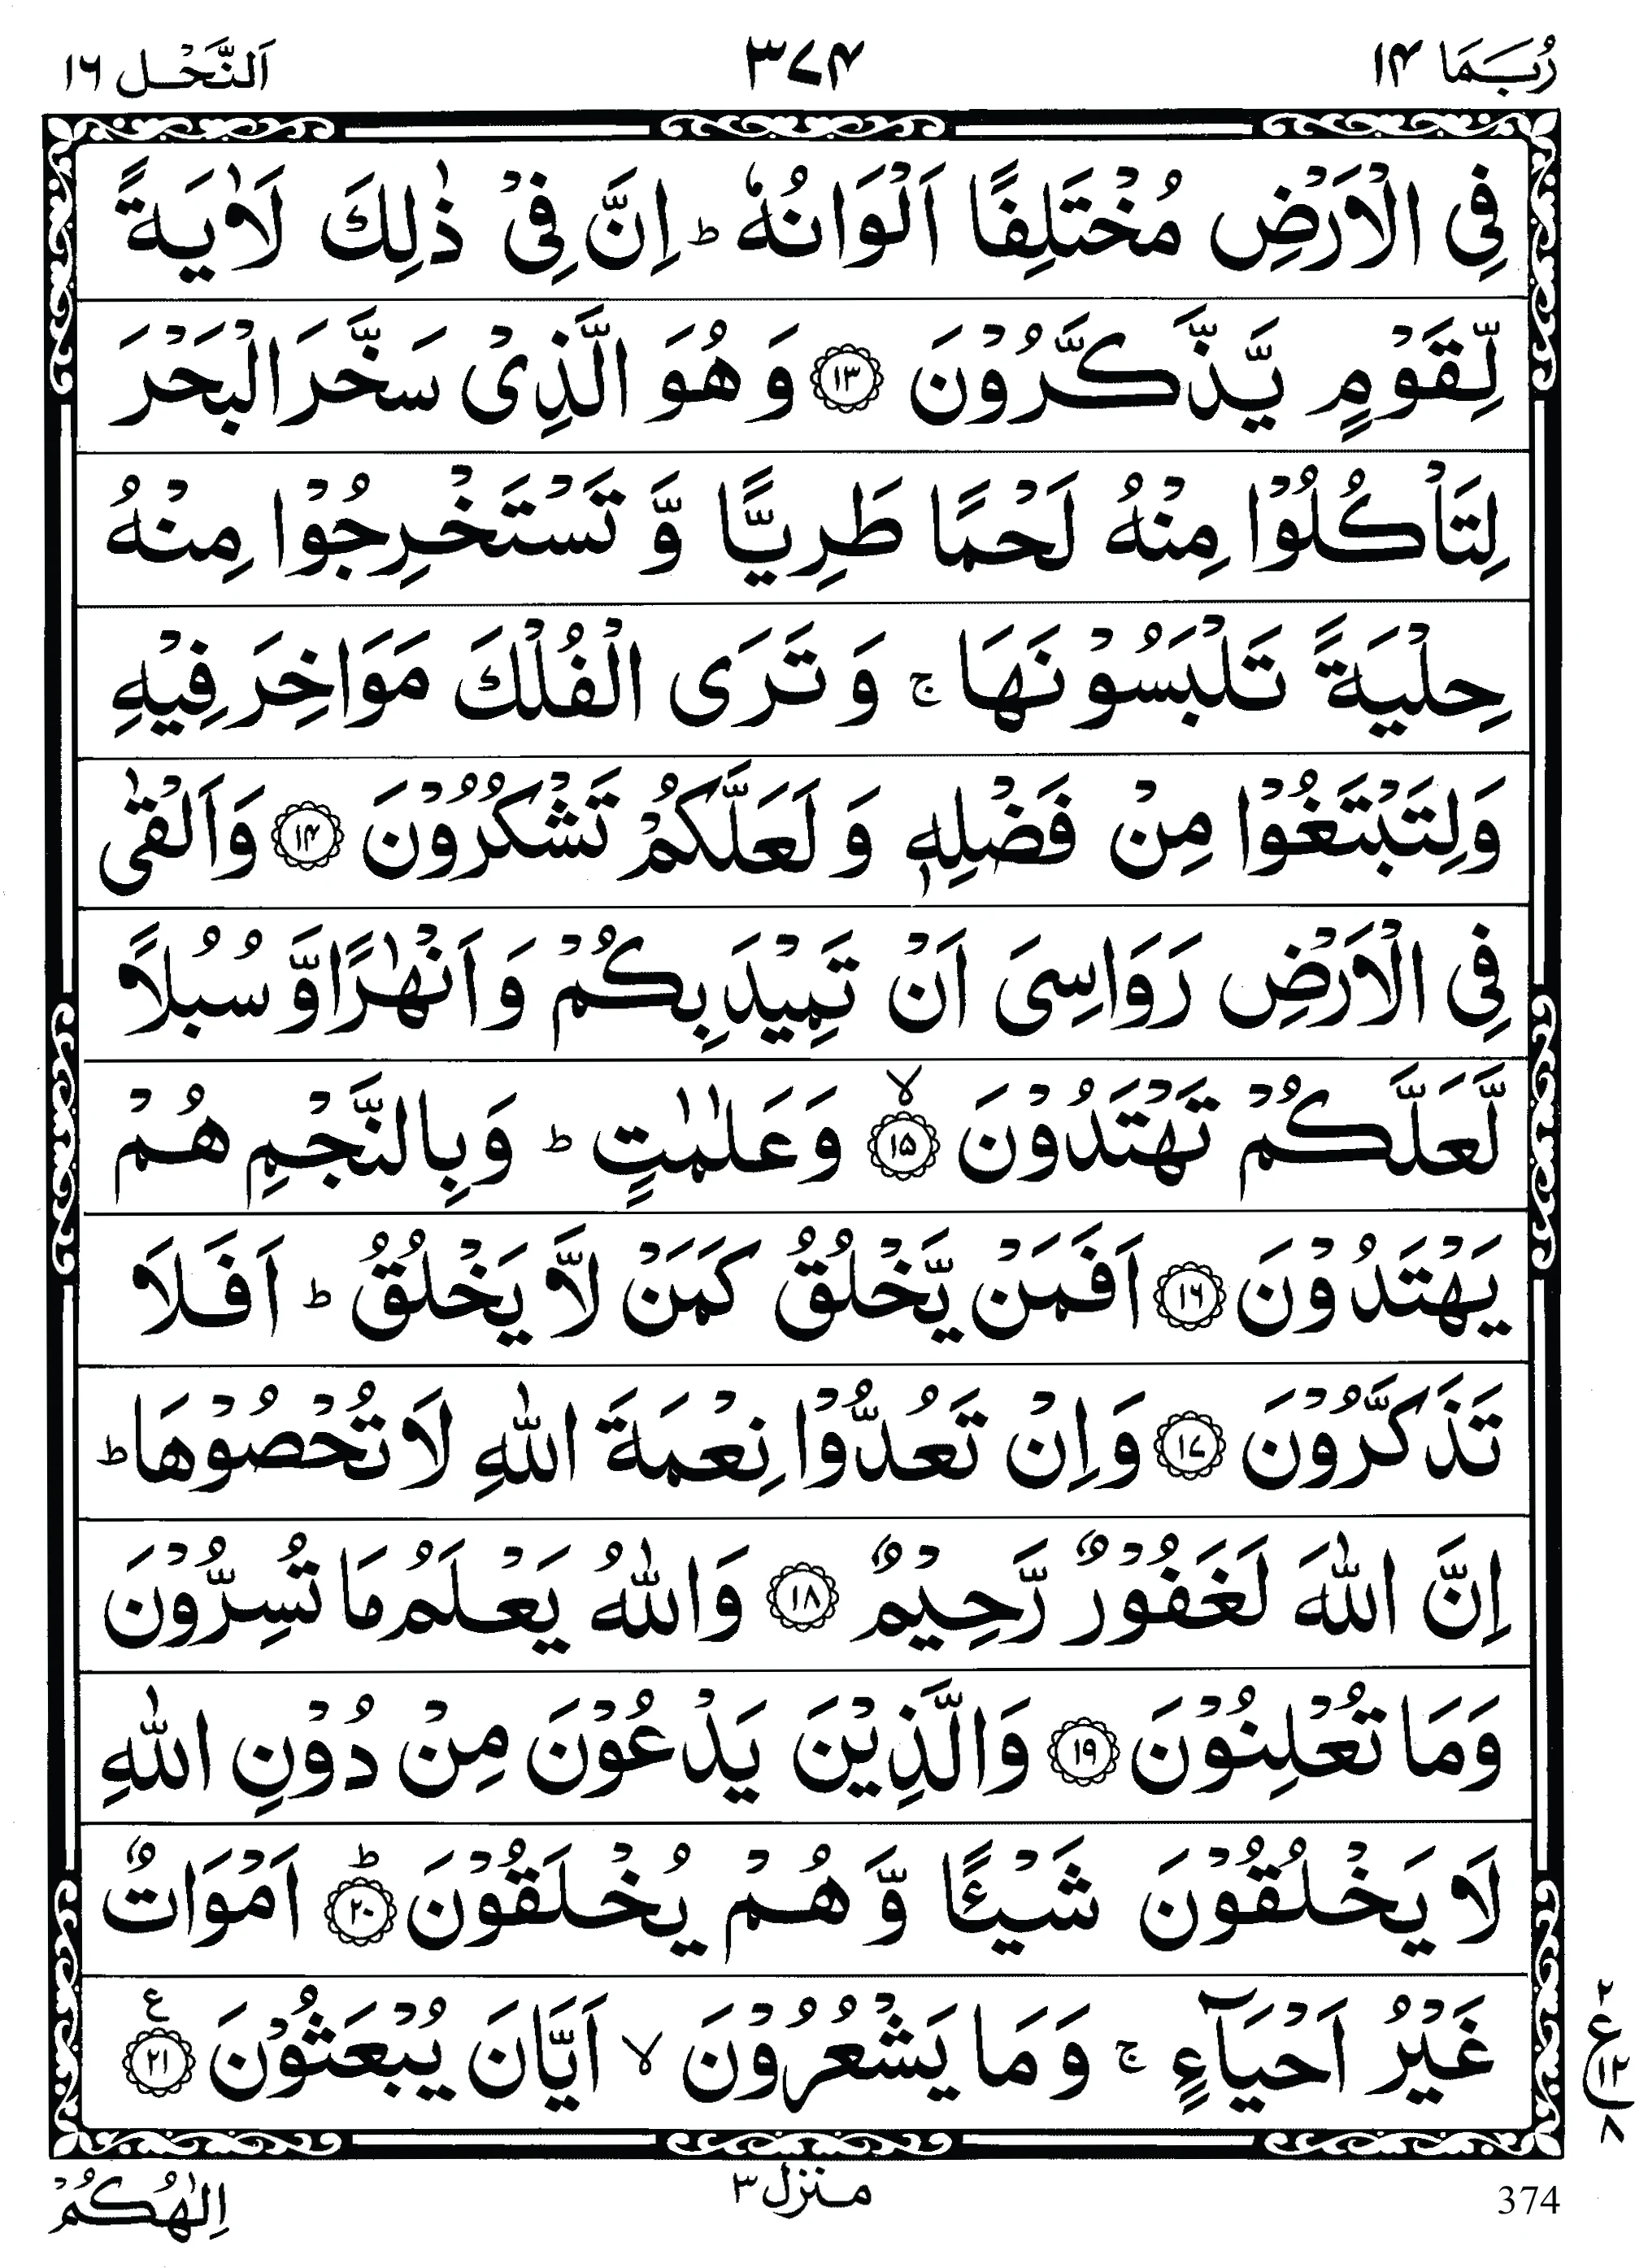 رُبَمَا ۱۴
۳۷۴
اَلنَّحْل ۱۶
فِی الْاَرْضِ مُخْتَلِفًا اَلْوَانُهٗ ؕ اِنَّ فِیْ ذٰلِكَ لَاٰیَةً
لِّقَوْمٍ یَّذَّكَّرُوْنَ ۱۳ وَ هُوَ الَّذِیْ سَخَّرَ الْبَحْرَ
لِتَاْكُلُوْا مِنْهُ لَحْمًا طَرِیًّا وَّ تَسْتَخْرِجُوْا مِنْهُ
حِلْیَةً تَلْبَسُوْنَهَا ۚ وَ تَرَی الْفُلْكَ مَوَاخِرَ فِیْهِ
وَلِتَبْتَغُوْا مِنْ فَضْلِهٖ وَ لَعَلَّكُمْ تَشْكُرُوْنَ ۱۴ وَاَلْقٰی
فِی الْاَرْضِ رَوَاسِیَ اَنْ تَمِیْدَ بِكُمْ وَ اَنْهٰرًا وَّ سُبُلًا
لَّعَلَّكُمْ تَهْتَدُوْنَ ۙ ۱۵ وَ عَلٰمٰتٍ ؕ وَ بِالنَّجْمِ هُمْ
یَهْتَدُوْنَ ۱۶ اَفَمَنْ یَّخْلُقُ كَمَنْ لَّا یَخْلُقُ ؕ اَفَلَا
تَذَكَّرُوْنَ ۱۷ وَاِنْ تَعُدُّوْا نِعْمَةَ اللّٰهِ لَا تُحْصُوْهَا ؕ
اِنَّ اللّٰهَ لَغَفُوْرٌ رَّحِیْمٌ ۱۸ وَاللّٰهُ یَعْلَمُ مَا تُسِرُّوْنَ
وَمَا تُعْلِنُوْنَ ۱۹ وَالَّذِیْنَ یَدْعُوْنَ مِنْ دُوْنِ اللّٰهِ
لَا یَخْلُقُوْنَ شَیْـًٔا وَّ هُمْ یُخْلَقُوْنَ ؕ ۲۰ اَمْوَاتٌ
غَیْرُ اَحْیَآءٍ ۚ وَ مَا یَشْعُرُوْنَ ۙ اَیَّانَ یُبْعَثُوْنَ ۲۱ ع
۲
ع
۱۲
۸
اِلٰهُكُمْ
منزل ۳
374